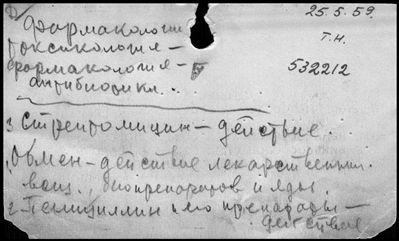 Фармакология 25.5.59.
токсикология —
фармакология — Т.Н.
антибиотики. 532212
3 Стрептомицин — действие.
1 Обмен — действие лекарственных
вещ., биопрепаратов и яды.
2 Пенициллин и его препараты —
действие